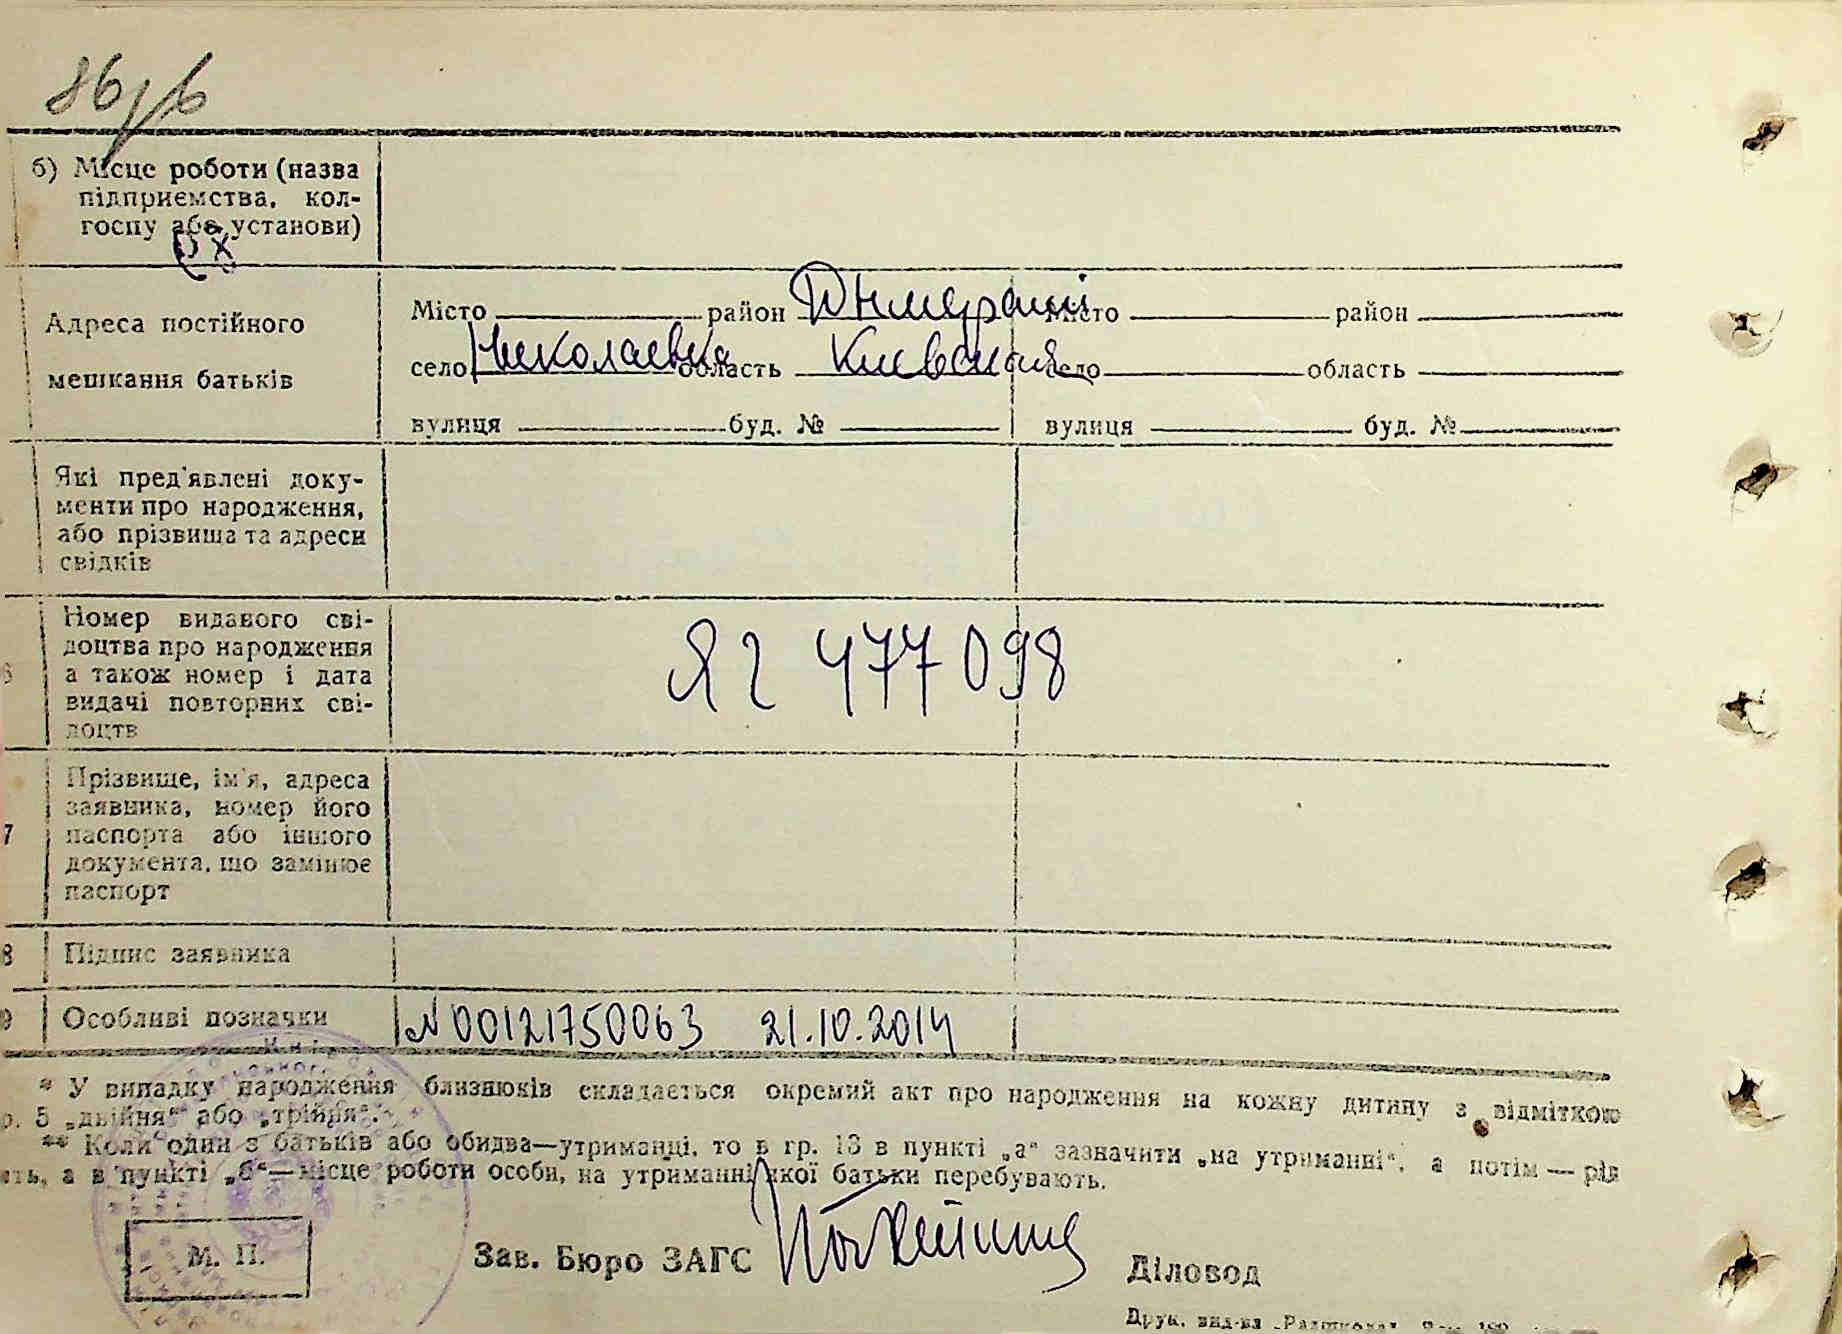 86
б) Місце роботи (назва
підприємства, кол-
госпу або установи)
Адреса постійного
мешкання батьків
Місто район Дымерский Місто район
село Николаевка область Киевская село область
вулиця буд. № вулиця буд. №
Які пред'явлені доку-
менти про народження,
або прізвища та адреси
свідків
Номер виданого сві-
доцтва про народження
а також номер і дата
видачі повторних сві-
доцтв
ЯГ 477098
7 Прізвище, ім'я, адреса
заявника, номер його
паспорта або іншого
документа, що замінює
паспорт
8 Підпис заявника
9 Особливі позначки N 00121750063 21.10.2014
* У випадку народження близнюків складається окремий акт про народження на кожну дитину з відміткою
р. 5 „двійня“ або „трійня“.
** Коли один з батьків або обидва—утриманці, то в гр. 13 в пункті „а“ зазначити „на утриманні“, а потім — рід
ять, а в пункті „б“—місце роботи особи, на утриманні якої батьки перебувають.
М. П.
Зав. Бюро ЗАГС
Діловод
Друк. вид-ва